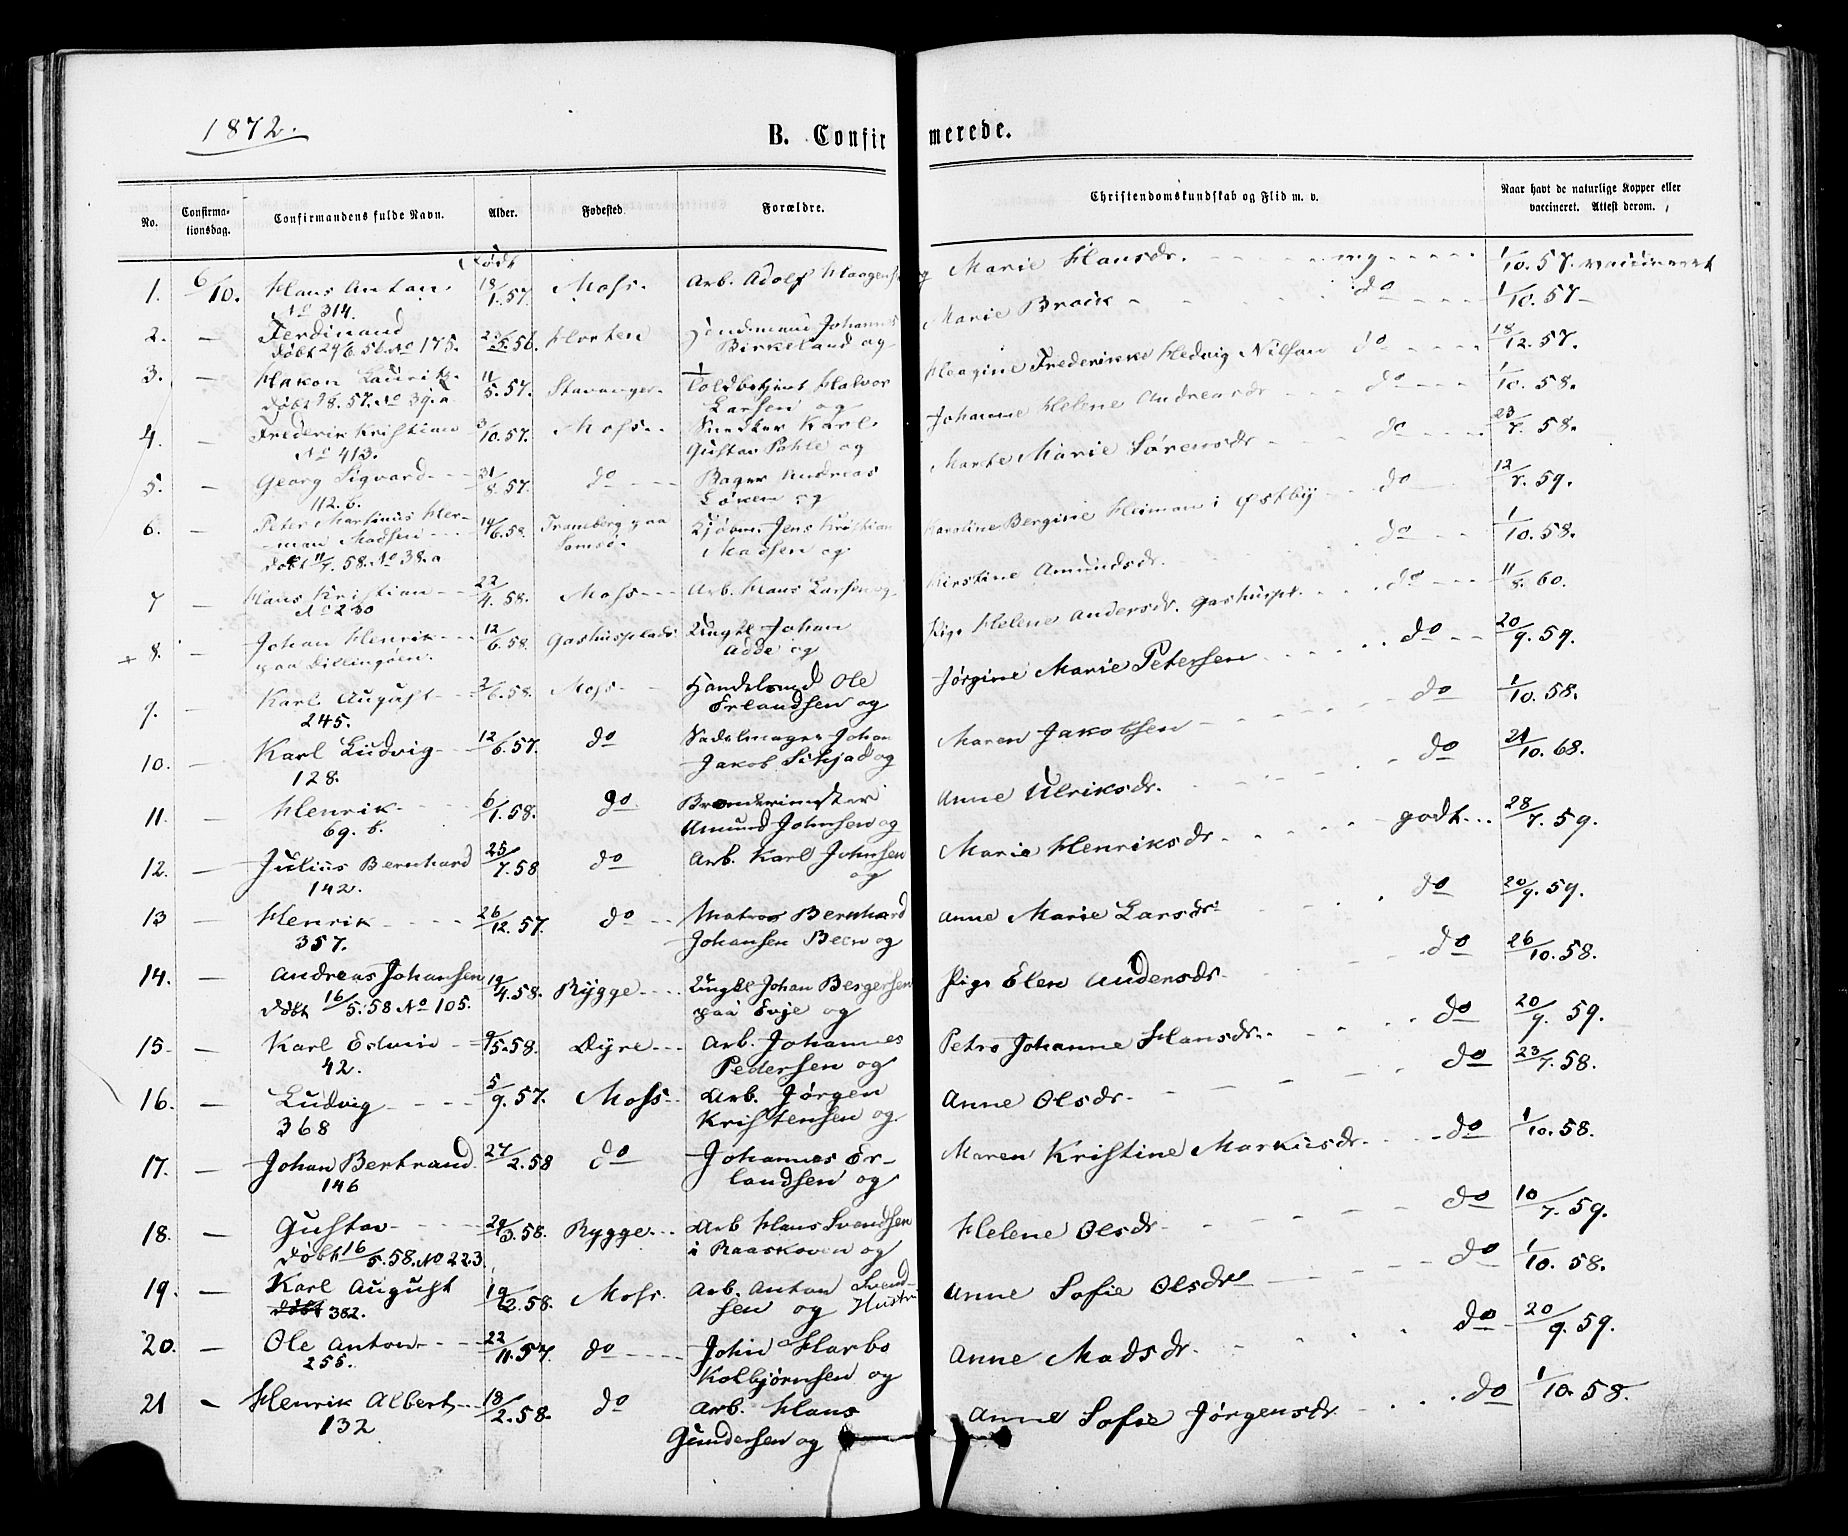 1872.
B. Confirmerede.
No. Confirmationsdag. Confirmandens fulde Navn. Alder. Fødested. Forældre. Christendomskundskab og Flid m. v. Naar havt de naturlige Kopper eller vaccineret. Attest derom.
Født
1. 6/10. Hans Anton 18/1.57. Moss. Arb. Adolf Haagensen og Marie Hansdr. mg 1/10.57. vaccineret
No 314.
2. — Ferdinand 23/5.56. Horten Johannes Marie Broik do 1/10.57
Døbt 29/6.56. No 175. Birkeland og
3. — Hakon Laurits 11/5.57. Stavanger Toldbetjent Halvor Haagine Frederikke Hedvig Nilsen do 18/12.57.
Døbt 57. No 39. a Larsen og
4. — Frederik Kristian 3/10.57. Moss Snedker Karl Johanne Helene Andreasdr do 1/10.58.
No 413. Gustav Pohle og
5. — Georg Sigvard 31/8.57. do Bager Andreas Marthe Marie Sørensdr do 23/7.58.
112. b. Løken og
6. — Peter Martinus Her- 19/6.58. Traneberg paa Jens Kristian Karoline Bergine Heiman i Østby do 12/7.59.
man Madsen Samsø. Madsen og
døbt 11/7.58. No 38. a
7 — Hans Kristian 22/4.58. Moss Arb. Hans Larsen og Kirstine Amundsdr. do 1/10.58.
No 230
+ 8. — Johan Henrik 12/6.58. Gashusplads Ungkl Johan Pige Helene Andersdr. Gashuspl. do 11/8.60.
paa Dillingøen. Adde og
9. — Karl August 2/6.58. Moss Handelsmd Ole Jørgine Marie Petersen do 20/9.59.
245. Erlandsen og
10. — Karl Ludvig 12/6.57. do Sadelmager Johan Maren Jakobsen do 1/10.58.
128. Jakob og
11. — Henrik 6/1.58. do Anne Ulriksdr. do 21/10.68.
69. b. Amund Johnsen og
12. — Julius Bernhard 25/7.58 do Arb. Karl Johnsen Marie Henriksdr. godt 28/7.59.
142. og
13 — Henrik 26/12.57. do Matros Bernhard Anne Marie Larsdr do 20/9.59.
357. Johansen Been og
14. — Andreas Johansen 19/4.58. Rygge Ungkl Johan Bergersen Pige Elen Andersdr. do 26/10.58.
døbt 16/5.58 No 105. paa Evje og
15. — Karl Edvin 9/5.58. Dyre Arb. Johannes Petra Johanne Hansdr. do 20/9.59.
42. Pedersen og
16. — Ludvig 5/9.57. Moss Arb. Jørgen Anne Olsdr. do 23/7.58.
368 Kristensen og
17. — Johan Bertrand 27/2.58 do Johannes Er- Maren Kristine Markusdr. do 1/10.58.
146 landsen og
18. — Gustav 29/3.58. Rygge Arb Hans Svendsen Helene Olsdr. do 10/7.59.
døbt 16/5.58. No 223. i Raaskoven og
19. — Karl August 19/2.58. Moss Arb. Anton Svend- Anne Sofie Olsdr do 1/10.58.
døbt 382. sen og Hustru
20. — Ole Anton 22/11.57. do John Harbo Anne Madsdr. do 20/9.59.
255. Kolbjørnsen og
21 — Henrik Albert 18/2.58. do Arb. Hans Anne Sofie Jørgensdr. do 1/10.58.
132 Gundersen og